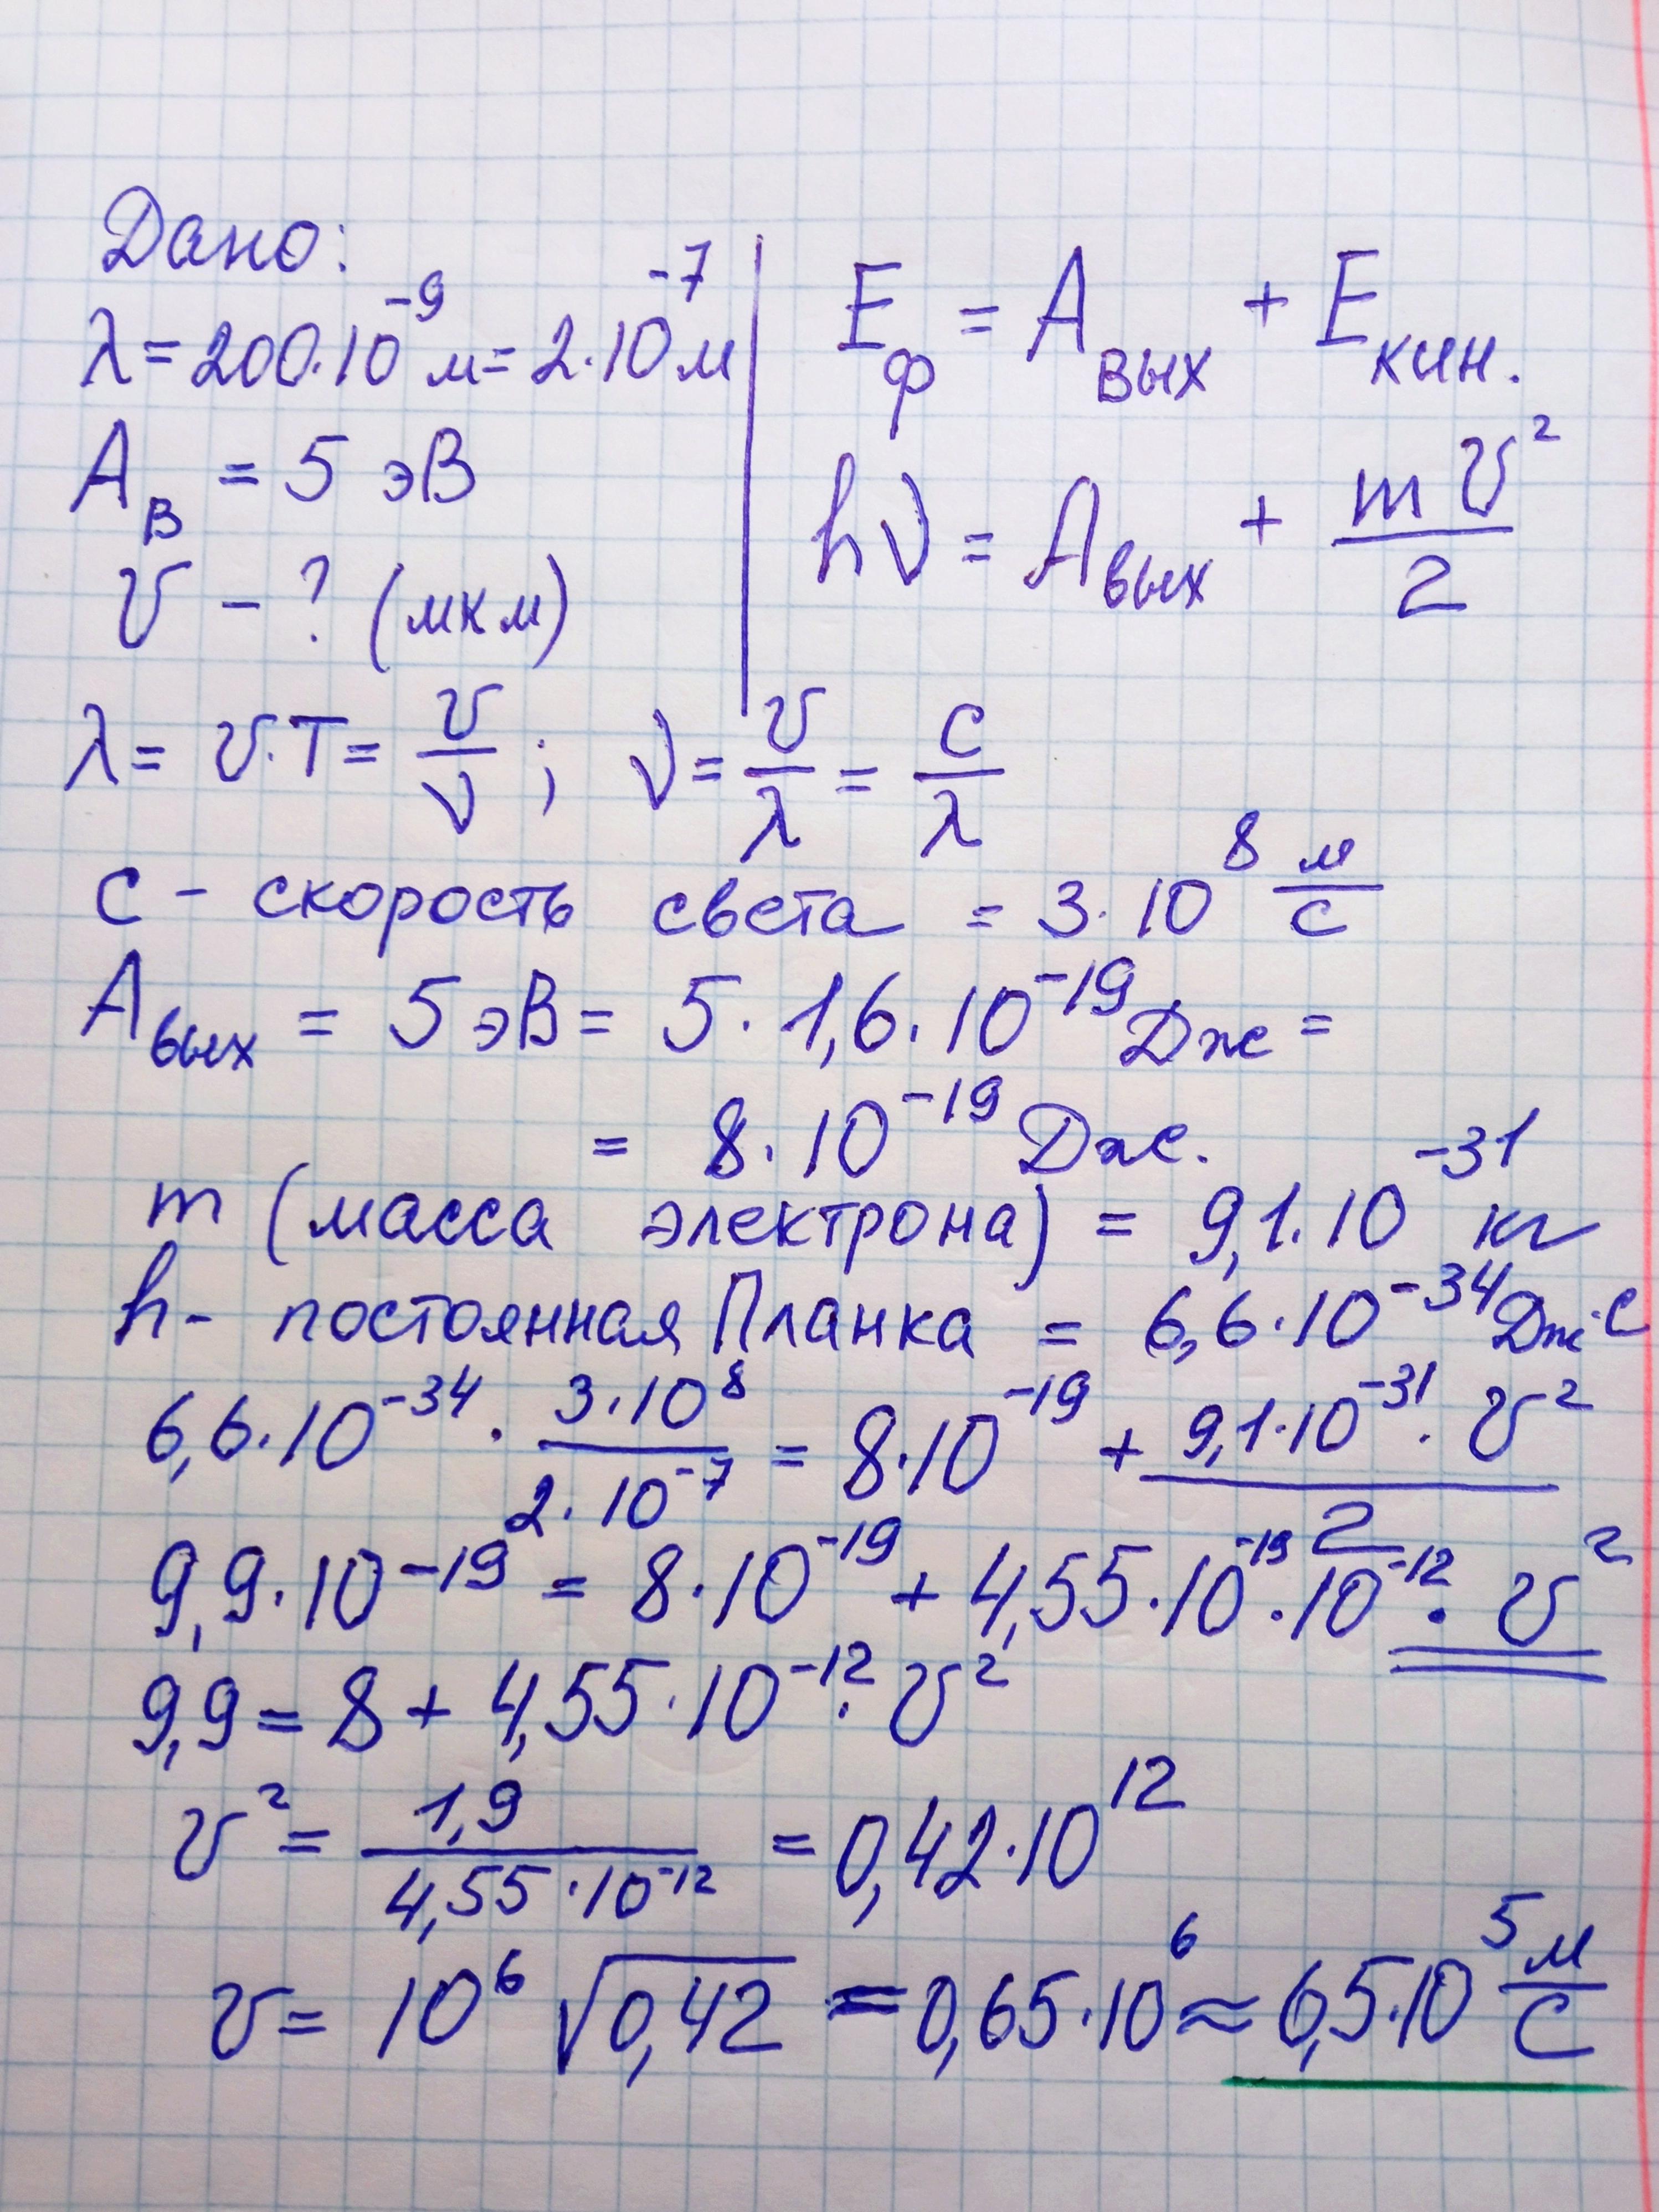 Дано:
λ = 200·10⁻⁹ м = 2·10⁻⁷ м
A_в = 5 эВ
υ - ? (мкм)
E_ф = A_вых + E_кин.
hν = A_вых + mυ²/2
λ = υ·T = υ/ν ; ν = υ/λ = c/λ
c - скорость света = 3·10⁸ м/с
A_вых = 5 эВ = 5·1,6·10⁻¹⁹ Дж =
= 8·10⁻¹⁹ Дж.
m (масса электрона) = 9,1·10⁻³¹ кг
h - постоянная Планка = 6,6·10⁻³⁴ Дж·с
6,6·10⁻³⁴ · 3·10⁸/2·10⁻⁷ = 8·10⁻¹⁹ + 9,1·10⁻³¹·υ²/2
9,9·10⁻¹⁹ = 8·10⁻¹⁹ + 4,55·10⁻¹⁹·10⁻¹²·υ²
9,9 = 8 + 4,55·10⁻¹²·υ²
υ² = 1,9/4,55·10⁻¹² = 0,42·10¹²
υ = 10⁶ √0,42 = 0,65·10⁶ ≈ 6,5·10⁵ м/с